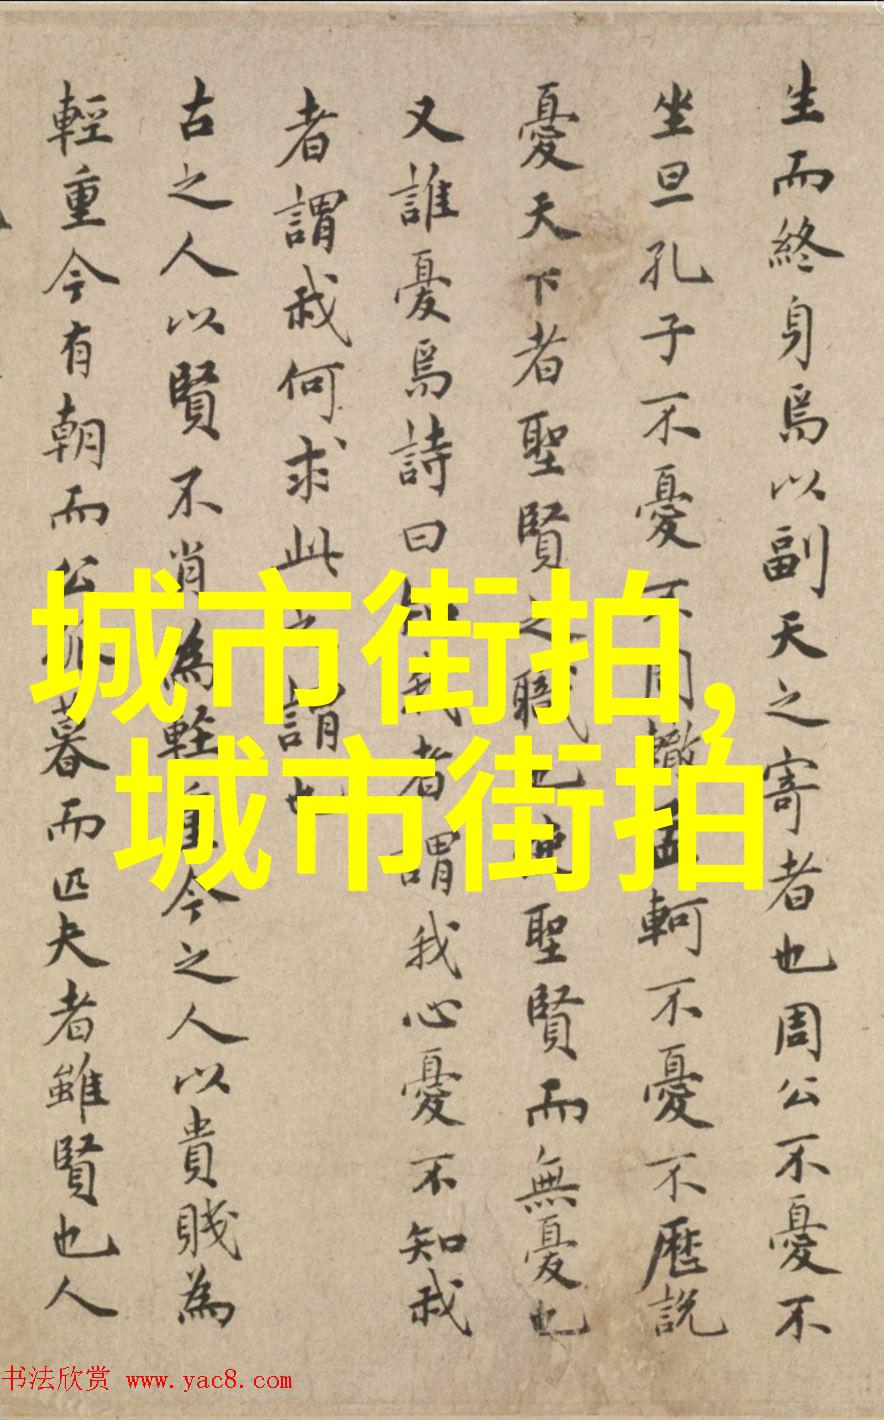 生而終身焉以副天之寄者也周公不憂不
坐旦孔子不憂不轍孟軻不憂不歷說
憂天下者聖賢之職也使聖賢而無憂也
又誰憂焉詩曰知我者謂我心憂不知我
者謂我何求此之謂也
古之人以賢不肖為輕重今之人以貴賤為
輕重今有朝而公暮而匹夫者雖賢也人
城市街拍,
城市街拍
书法欣赏 www.yac8.com